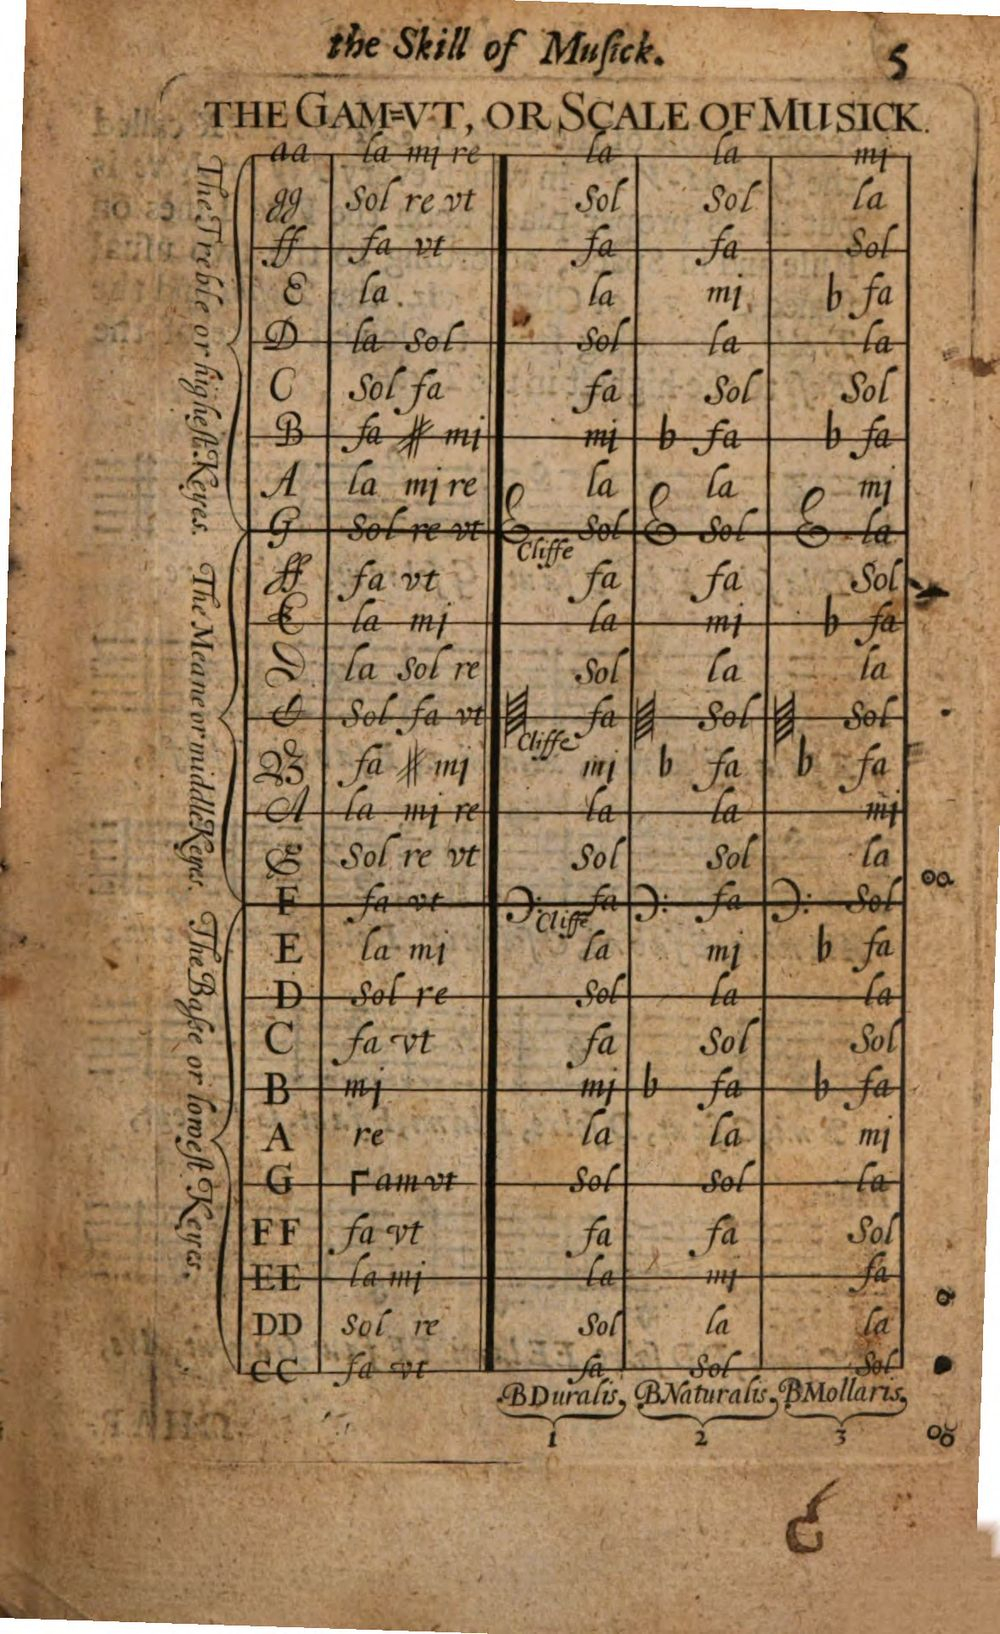 the Skill of Muſick. 5
THE GAM=VT, OR SCALE OF MUSICK.
The Treble or higheſt Keyes.
The Meane or middle Keyes.
The Baſse or loweſt Keyes.
aa la mj re la la mj
gg Sol re vt Sol Sol la
ff fa vt fa fa Sol
E la. la mj b fa
D la Sol Sol la la
C Sol fa fa Sol Sol
B fa # mj mj b fa b fa
A la mj re la la mj
G Sol re vt Sol Sol la
Cliffe
ff fa vt fa fa Sol
E la mj la mj b fa
D la Sol re Sol la la
C Sol fa vt fa Sol Sol
Cliffe
B fa # mj mj b fa b fa
A la mj re la la mj
G Sol re vt Sol Sol la
F fa vt fa fa Sol
Cliffe
E la mj la mj b fa
D Sol re Sol la la
C fa vt fa Sol Sol
B mj mj b fa b fa
A re la la mj
G Γ am vt Sol Sol la
FF fa vt fa fa Sol
EE la mj la mj fa
DD Sol re Sol la la
CC fa vt fa Sol Sol
BDuralis, BNaturalis, BMollaris,
1 2 3